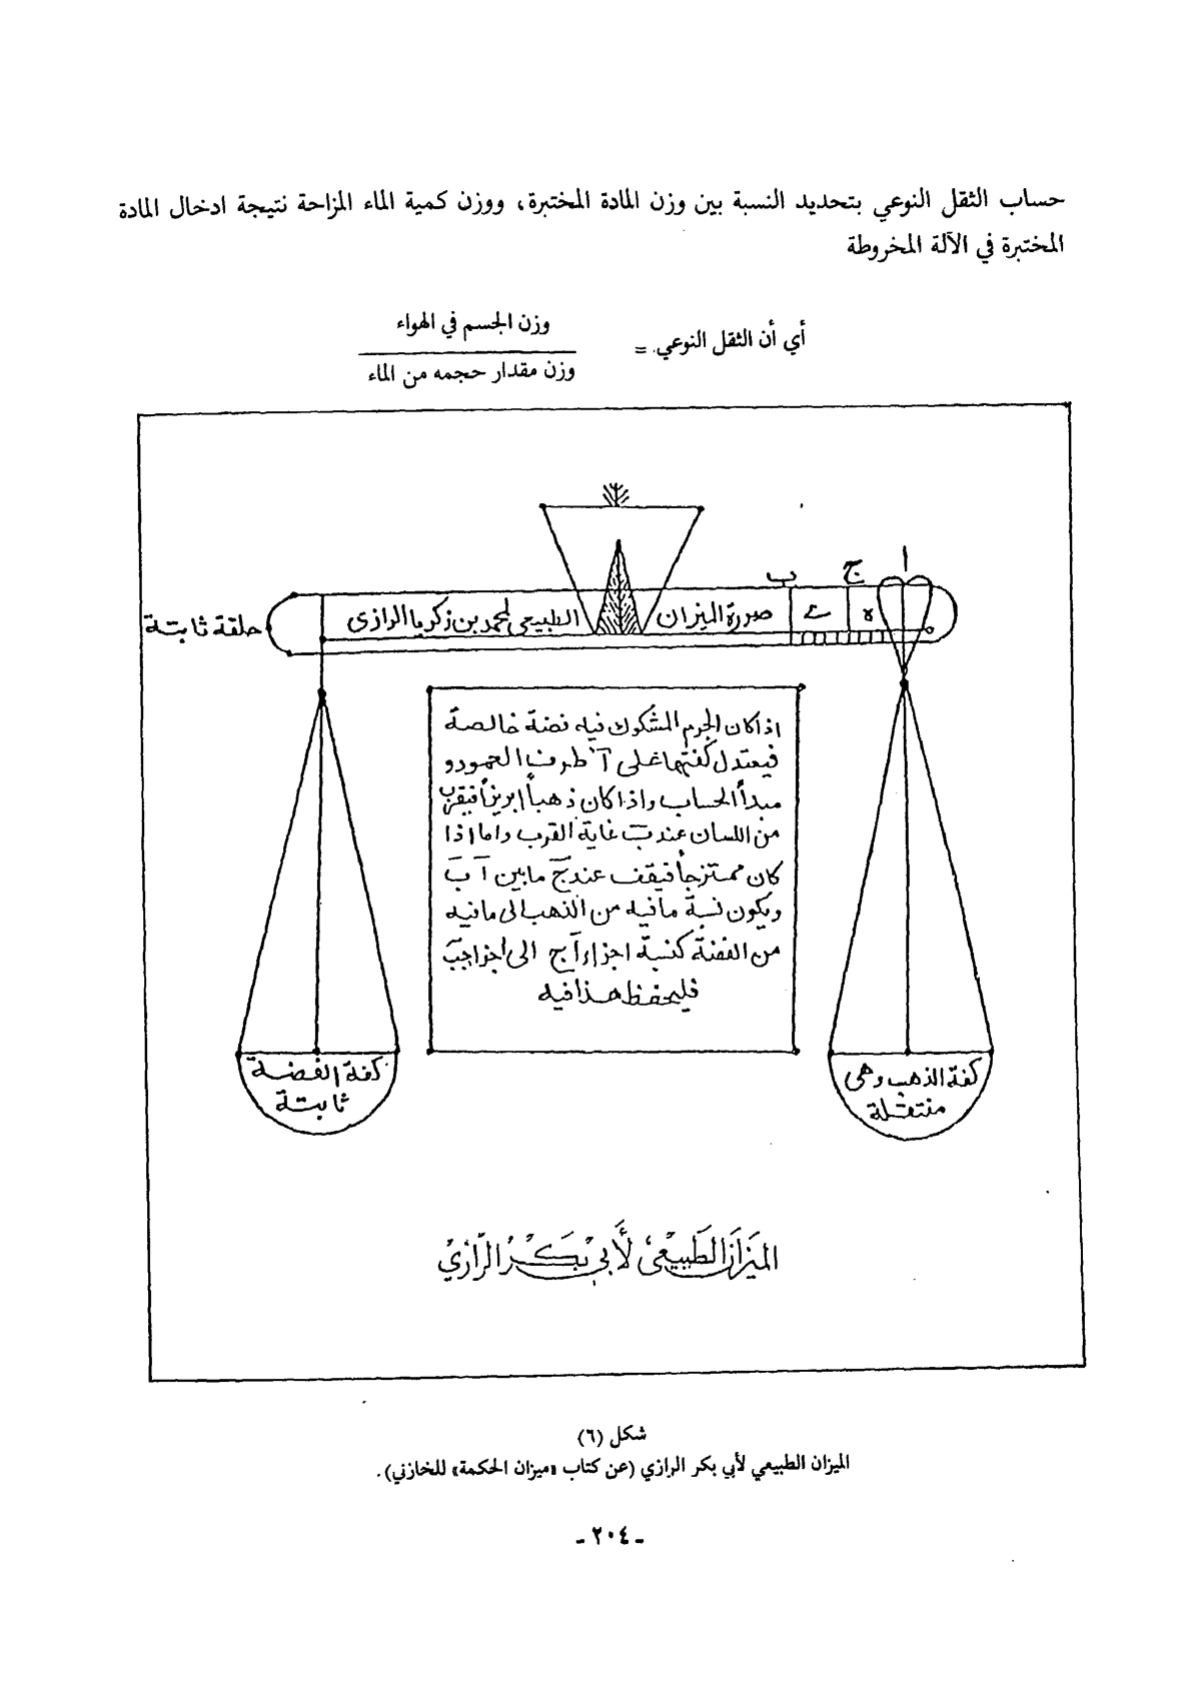 حساب الثقل النوعي بتحديد النسبة بين وزن المادة المختبرة، ووزن كمية الماء المزاحة نتيجة ادخال المادة
المختبرة في الآلة المخروطة
أي أن الثقل النوعي =
وزن الجسم في الهواء
وزن مقدار حجمه من الماء
ا
ج
ب
حلقة ثابتة
صورة الميزان الطبيعي لمحمد بن زكريا الرازى
ه
اذا كان الجرم المشكوك فيه فضة خالصة
فيعتدل كفتها على آ طرف العمود و
مبدأ الحساب واذا كان ذهباً ابريزاً فيقرب
من اللسان عند ب غاية القرب واما اذا
كان ممتزجاً فيقف عند ج ما بين آ ب
ويكون نسبة ما فيه من الذهب الى ما فيه
من الفضة كنسبة اجزاء آج الى اجزا جب
فليحفظ هذا فيه
كفة الذهب وهى
منتقلة
كفة الفضة
ثابتة
الميَزان الطَبيْعى لأَبي بَكْر الرّازيْ
شكل (٦)
الميزان الطبيعي لأبي بكر الرازي (عن كتاب «ميزان الحكمة» للخازني).
- ٢٠٤ -